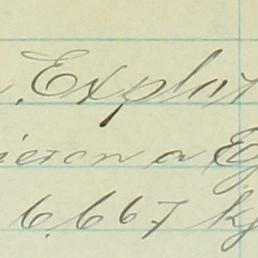 Explot
ieron a Ej
6,667 kg